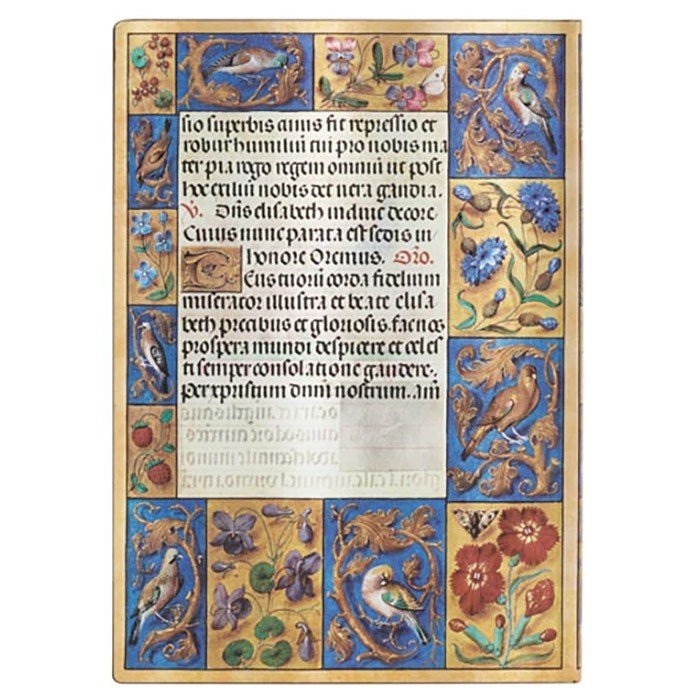 sio superbis cuius fit repressio et
robur humiliū tui pro nobis ma
ter pia rogo regem omniū ut post
hoc exiliū nobis det uera gaudia.
V. Dn̄s elisabeth induit decore
Cuius nunc parata est sedis in
honore Oremus. Oro.
Deus tuorū corda fidelium
miserator illustra et beate elisa
beth precibus et gloriosis. fac nos
prospera mundi despicere et celes
ti semper consolatione gaudere.
Per xpristum dn̄m nostrum. am